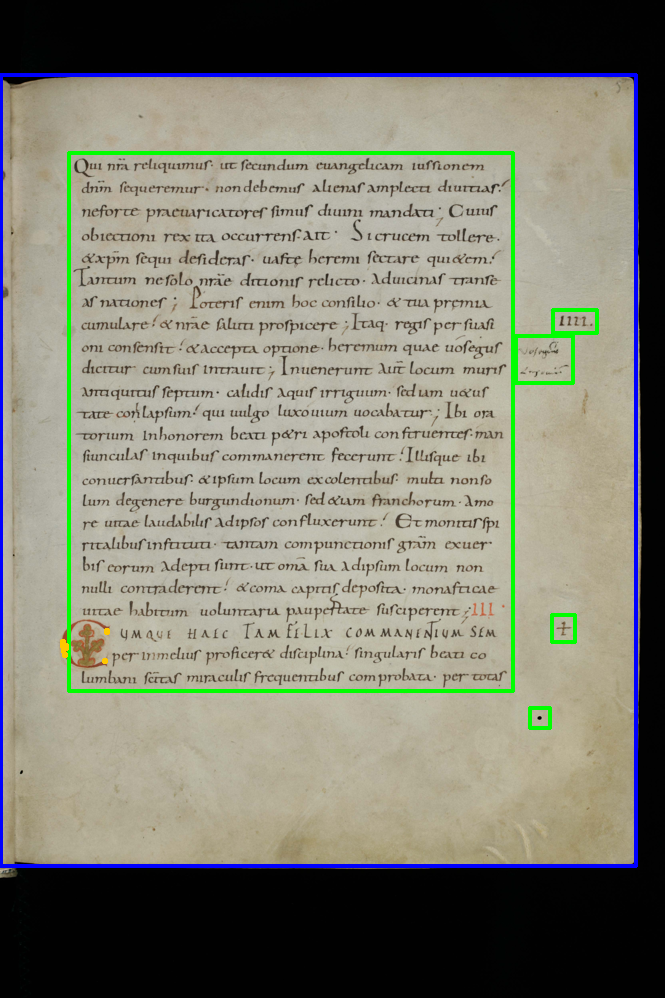 Qui nr̄a reliquimus· ut secundum euangelicam iussionem
dnm̄ sequeremur· non debemus alienas amplecti diuitias·
neforte praeuaricatores simus diuini mandati; Cuius
obiectioni rex ita occurrens· ait· Si crucem tollere·
&xpm̄ sequi desideras· uastę heremi sectare qui&em·
Tantum ne solo nr̄ae ditionis relicto· ad uicinas transe
as nationes; Poteris enim hoc consilio· & tua premia
cumulare· & nr̄ae saluti prospicere; Itaq· regis persuasi
oni consensit· & accepta optione· heremum quae uosegus
dicitur cum suis intrauit; Inuenerunt aut̄ locum muris
antiquitus septum· calidis aquis irriguum· sed iam u&us
tate conlapsum· qui uulgo luxouium uocabatur; Ibi ora
torium in honorem beati p&ri apostoli construentes· man
siunculas in quibus commanerent fecerunt· Illisque ibi
conuersantibus· & ipsum locum excolentibus· multi non so
lum de genere burgundionum· sed &iam franchorum· amo
re uitae laudabilis ad ipsos confluxerunt· Et monitis spi
ritalibus instituti· tantam compunctionis gram̄ exuer
bis eorum adepti sunt· ut oma̅ sua ad ipsum locum non
nulli contraderent· & coma capitis deposita· monasticae
uitae habitum uoluntaria paupertate susciperent; III
CUMQUE HAEC TAM FELIX COMMANENTIUM SEM
per in melius proficer& disciplina· singularis beati co
lumbani sc̄tas miraculis frequentibus comprobata· per totas
IIII.
+